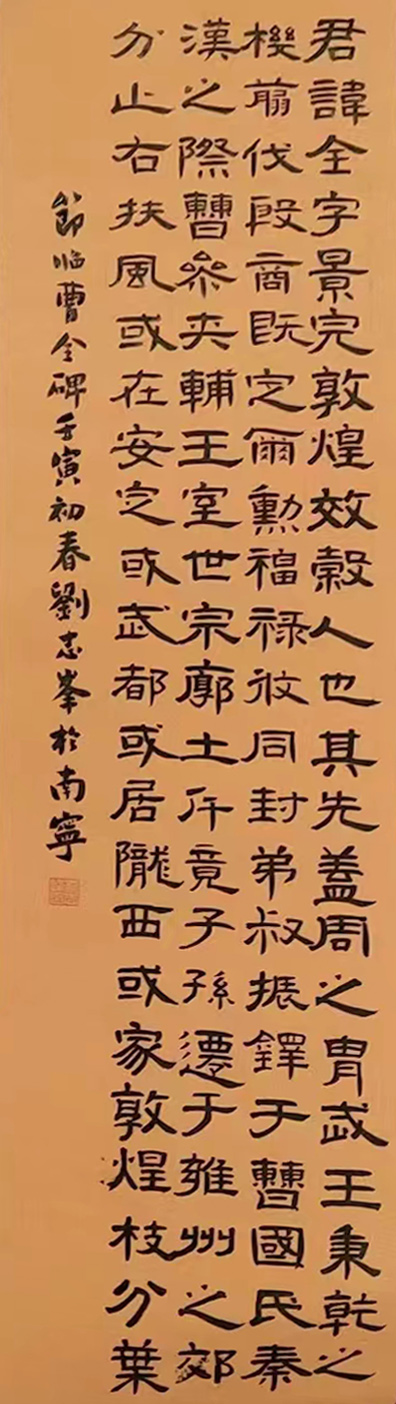 君諱全字景完敦煌效穀人也其先蓋周之胄武王秉乾之
機翦伐殷商既定爾勳福禄攸同封弟叔振鐸于曹國氏秦
漢之際曹參夾輔王室世宗廓土斥竟子孫遷于雍州之郊
分止右扶風或在安定或武都或居隴西或家敦煌枝分葉
節临曹全碑壬寅初春劉志峯於南寧